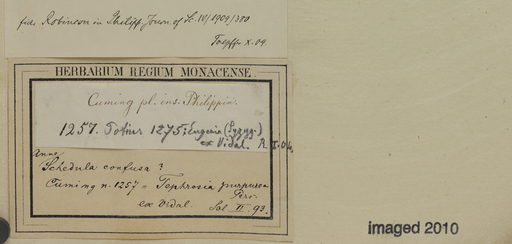 fide Robinson in Philipp. Journ. of Sc. IV/1909/380
Toepffer X.09.
HERBARIUM REGIUM MONACENSE.
Cuming pl. ins. Philippin.
1257. Potius 1275: Eugenia (Syzyg.)
ex Vidal. R. I.04.
Anne
Schedula confusa?
Cuming n. 1257 = Tephrosia purpurea
Pers.
ex Vidal. Sol. VI. 93.
imaged 2010